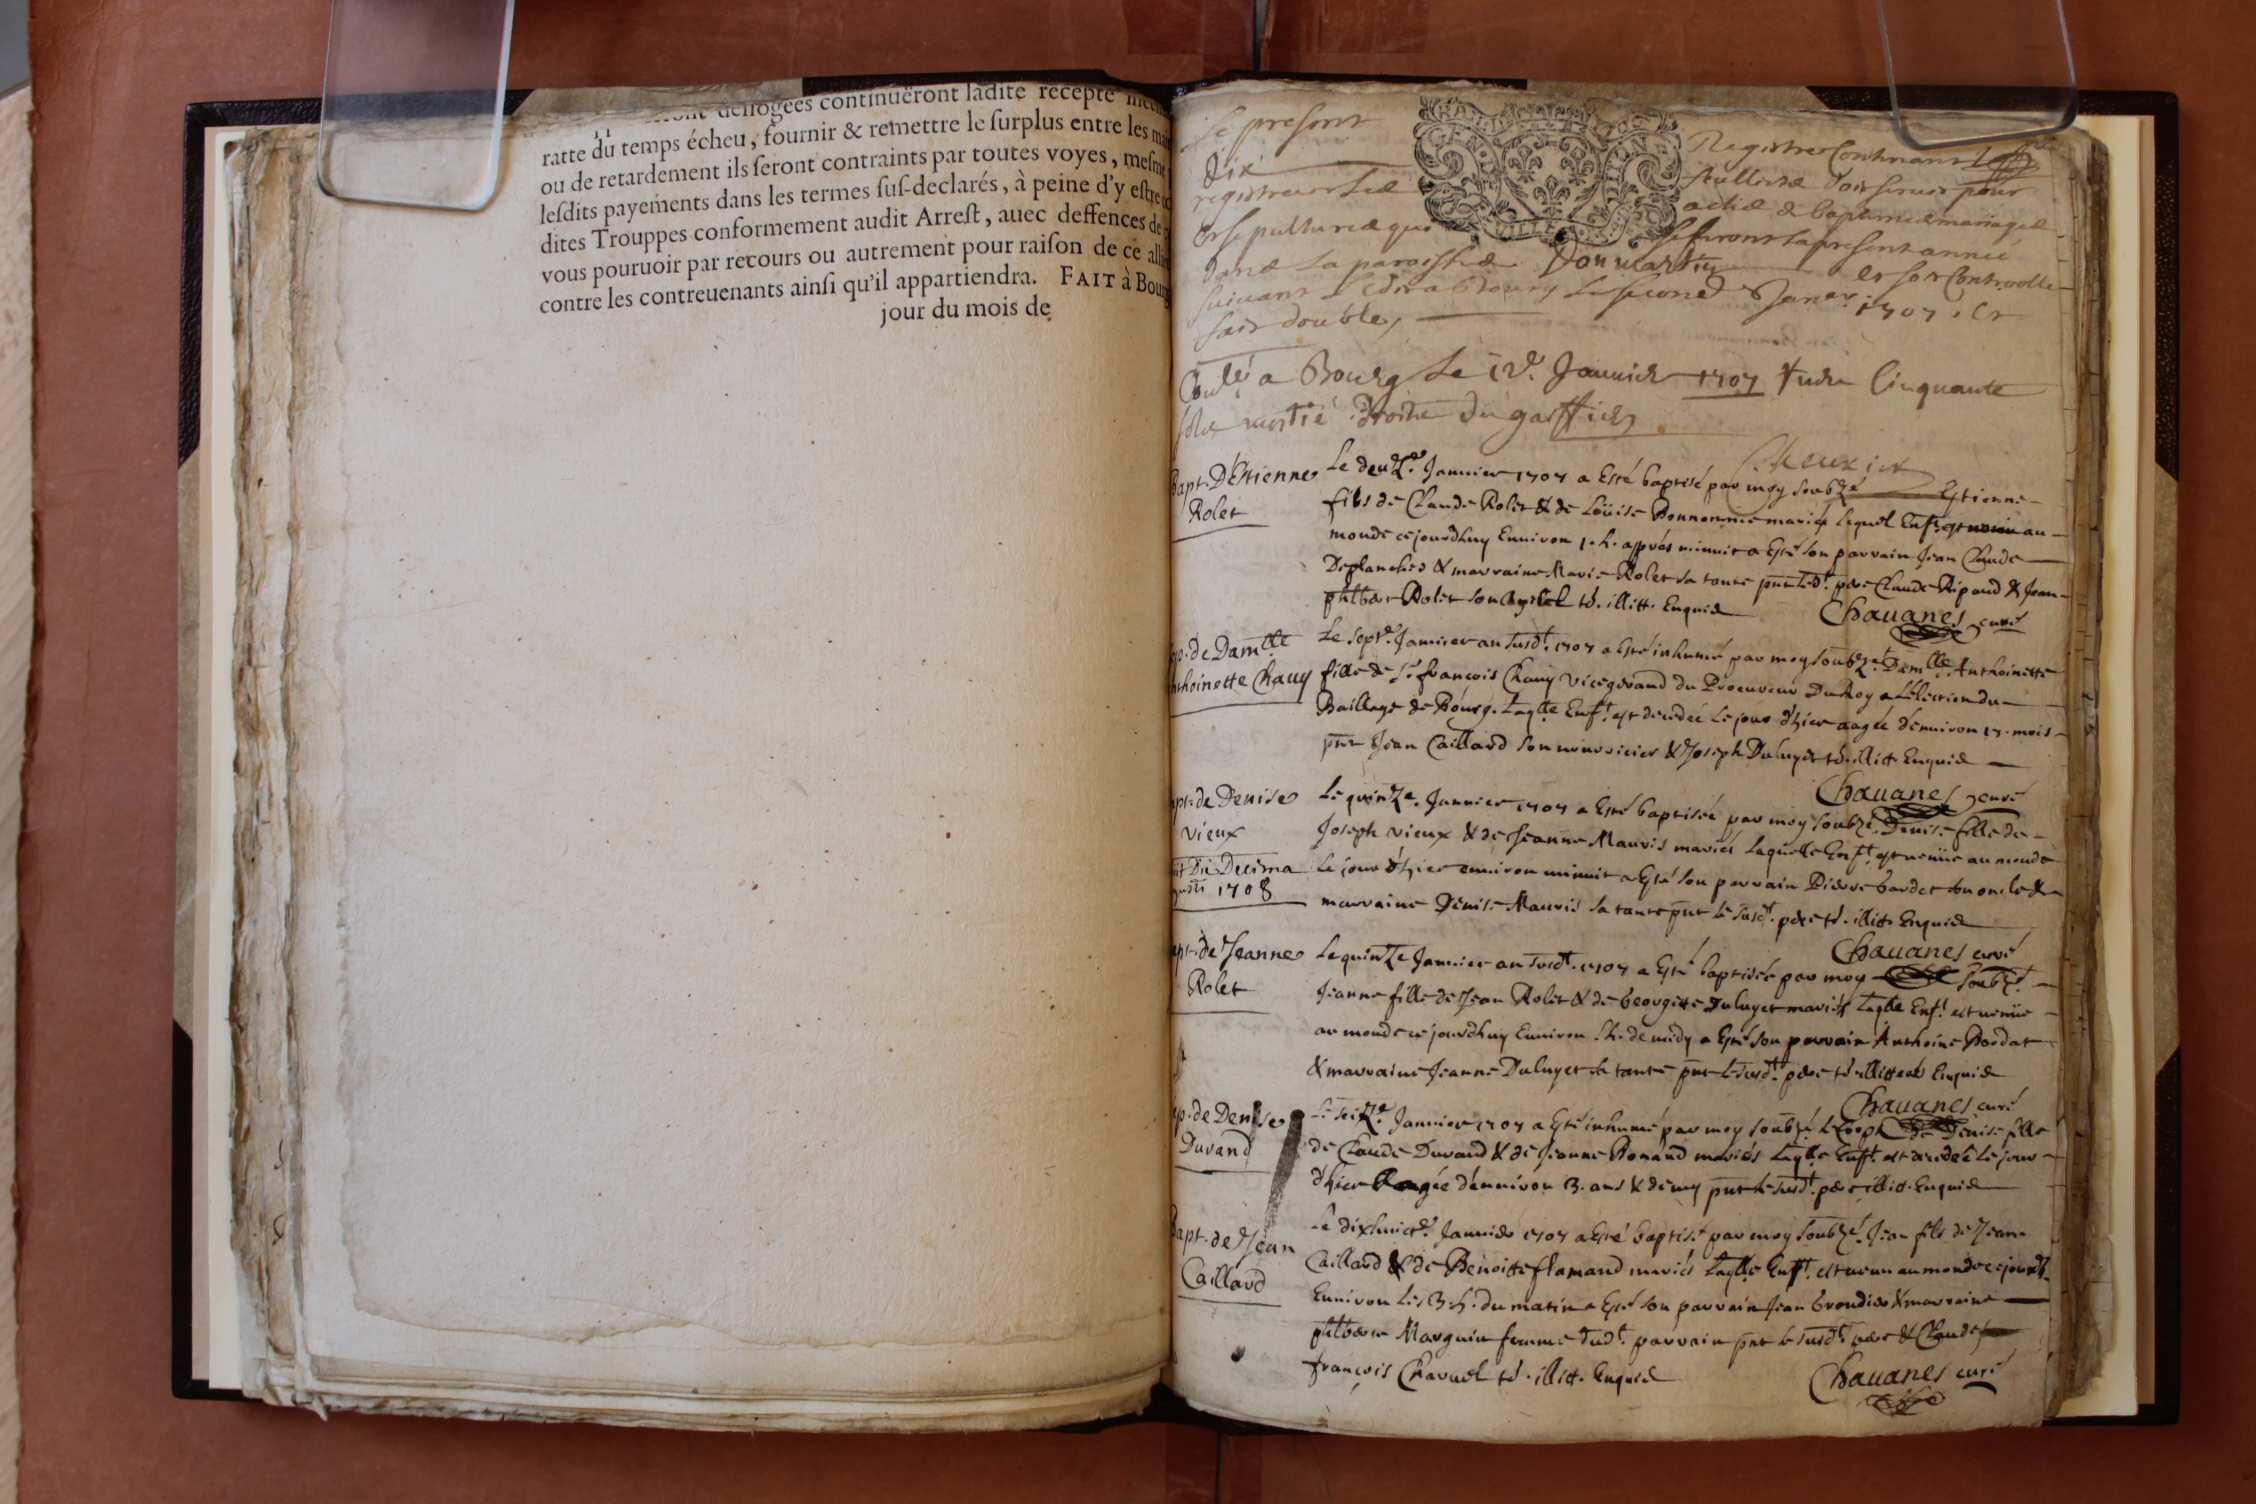 deslogées continuëront ladite recepte
ratte du temps écheu, fournir & remettre le surplus entre les
ou de retardement ils seront contraints par toutes voyes, mesme
lesdits payements dans les termes sus-declarés, à peine d'y estre
dites Trouppes conformement audit Arrest, auec deffences de
vous pouruoir par recours ou autrement pour raison de ce
contre les contreuenants ainsi qu'il appartiendra. FAIT à Bourg
jour du mois de
Le present Registre Contenant
dix feuillets doit seruir pour
registrer les actes de baptemes mariages
et sepultures qui se feront la presente année
dans la paroisse Donmartin et sera Controolle
suiuant L'edit a Bourg Le second Janer 1707. Et
fait double,
Conlé a Bourg Le 12e. Januier 1707 Cinquante
sols moitié droits du greffier
Bapt. D'Estienne
Rolet
Le deuxe. Januier 1707 a Esté baptisé par moy soubzé Estienne
fils de Claude Rolet & de Loüise Bonnemie mariés lequel Enft. est venu au
monde ce jourdhuy Enuiron 1. h. apprés minuit a Esté son parrain Jean Claude
Desplanches & marraine Marie Rolet sa tante pnt Ledt. pere Claude Ripaud & Jean
philber Rolet son ts. illitt. Enquis
Chauanes curé
p. de Damlle
nthoinette Chauy
Le septe. Januier an susdt. 1707 a Esté inhumé par moy soubzé Damlle. Anthoinette
fille de Sr. françois Chauy Vicegerand du Procureur Du Roy a L'élection du
Baillage de Bourg. Laqlle Enft. est decedée Le jour d'hier aagée d'enuiron 17. mois
pnt Jean Caillard son nourricier & Joseph Duluyer ts. illitt. Enquis
Chauanes curé
pt. de Denise
Vieux
Decima
1708
Le quinze. Januier 1707 a Esté baptisée par moy soubzé. Denise fille de
Joseph Vieux & de Jeanne Mauris mariés Laquelle Enft. est venüe au monde
Le jour d'hier enuiron minuit a Esté son parrain Pierre bardet son oncle &
marraine Denise Mauris sa tante pnt Le susdt. pere ts. illitt. Enquis
Chauanes curé
pt. de Jeanne
Rolet
Le quinze Januier an susdt. 1707 a Esté baptisée par moy soubzé.
Jeanne fille de Jean Rolet & de Georgette Duluyer mariés Laqlle Enft. est venüe
au monde ce jourdhuy Enuiron . h. de midy a Esté son parrain Anthoine Bordat
& marraine Jeanne Duluyer sa tante pnt Le susdt. pere ts. illitteré Enquis
Chauanes curé
p. de Denise
Durand
Le seize. Januier 1707 a Esté inhumé par moy soubzé. Le Corps de Denise fille
de Claude Durand & de Jeanne Bonand mariés Laqlle Enft. est decedée Le jour
d'hier aagée d'enuiron 3. ans & demy pnt Le susdt. pere illitt. Enquis
Bapt. de Jean
Caillard
Le dixhuicte. Januier 1707 a Esté baptisé par moy soubzé. Jean fils de Jean
Caillard & de Benoitte flamand mariés Laqlle Enft. est venu au monde ce jourdh.
Enuiron Les 3. h. du matin a Esté son parrain Jean & marraine
philberte Marguin femme dudt. parrain pnt Le susdt. pere & Claude
françois Charuel ts. illitt. Enquis
Chauanes curé